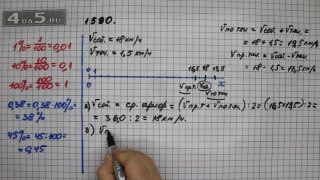 4DA5.RU
1590.
1% = 1/100 = 0,01
10% = 10/100 = 0,1
100% = 100/100 = 1
0,38 = 0,38·100% =
= 38%
45% = 45:100 =
= 0,45
Vсоб. = 18 км/ч
Vтеч. = 1,5 км/ч
Vпо теч. = Vсоб. + Vтеч. =
= 18 + 1,5 = 19,5 км/ч
Vпр.теч. = Vсоб. - Vтеч. =
= 18 - 1,5 = 16,5 км/ч
0 1
16,5 18 19,5
x
Vпр.т. Vсоб. Vпо теч
Vсоб. = ср. арифм = (Vпр.т + Vпо теч) : 2 = (16,5+19,5) : 2 =
= 36,0 : 2 = 18 км/ч.
в) Vп